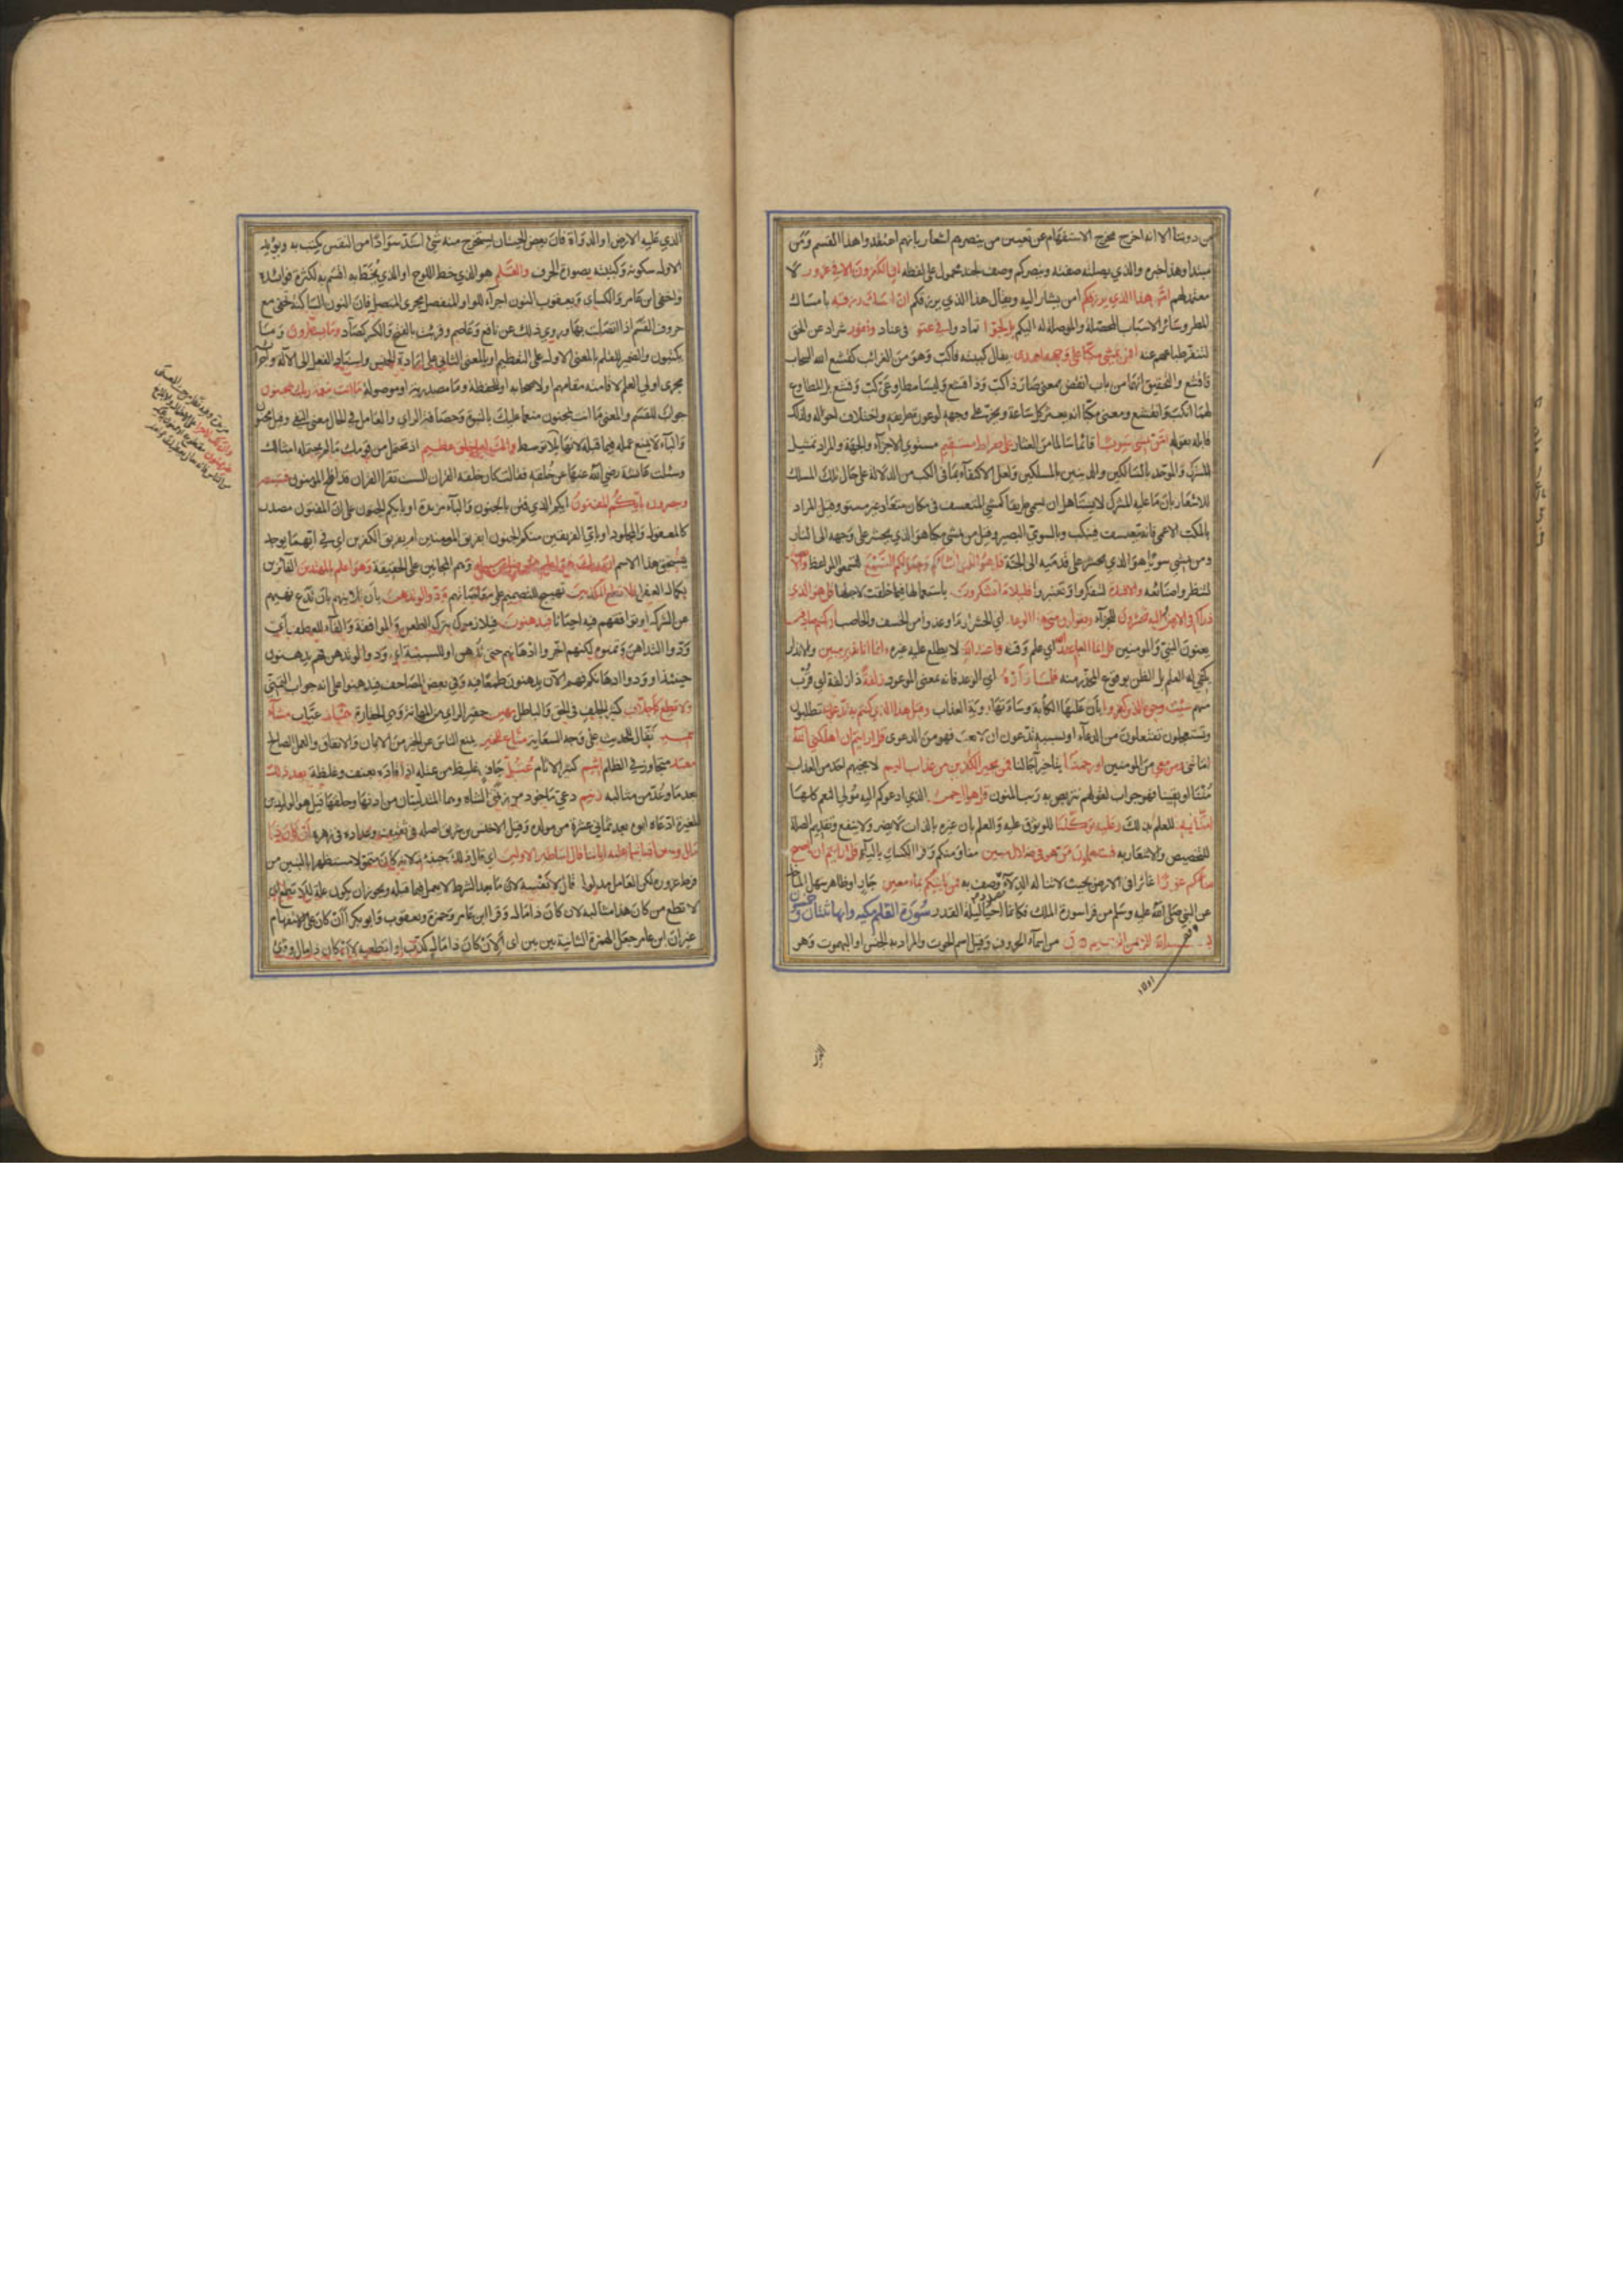 من دوننا الا انه اخرج مخرج الاستفهام عن تعيين من ينصرهم اشعارا بانهم اعتقدوا هذا القسم ومن
مبتدا وهذا خبره والذي بصلته صفته وينصركم وصف لجند محمول على لفظه ان الكفرون الا في غرور لا
معتمد لهم امن هذا الذي يرزقكم امن يشار اليه ويقال هذا الذي يرزقكم ان امسك رزقه بامساك
المطر وسائر الاسباب المحصلة والموصلة له اليكم بل لجوا تمادوا في عتو في عناد ونفور شراد عن الحق
لتنفر طباعهم عنه افمن يمشي مكبا على وجهه اهدى يقال كببته فاكب وهو من الغرائب كقشع الله السحاب
فاقشع والتحقيق انهما من باب انفض بمعنى صار ذا كب وذا قشع وليسا مطاوعي كب وقشع بل المطاوع
لهما انكب وانقشع ومعنى مكبا انه يعثر كل ساعة ويخر على وجهه لوعورة طريقه واختلاف اجزائه ولذلك
قابله بقوله امن يمشي سويا قائما سالما من العثار على صراط مستقيم مستوي الاجزاء والجهة والمراد تمثيل
المشرك والموحد بالسالكين والدينين بالمسلكين ولعل الاكتفاء بما في الكب من الدلالة على حال المسلك
للاشعار بان ما عليه المشرك لا يستاهل ان يسمى طريقا كمشي المتعسف في مكان متعاد غير مستو وقيل المراد
بالمكب الاعمى فانه يتعسف فينكب وبالسوي البصير وقيل من يمشي مكبا هو الذي يحشر على وجهه الى النار
ومن يمشي سويا هو الذي يحشر على قدميه الى الجنة قل هو الذي انشاكم وجعل لكم السمع لتسمعوا المواعظ والابصار
لتنظروا صنائعه والافئدة لتفكروا وتعتبروا قليلا ما تشكرون باستعمالها فيما خلقت لاجلها قل هو الذي
ذراكم في الارض واليه تحشرون للجزاء ويقولون متى هذا الوعد اي الحشر او ما وعدوا من الخسف والحاصب ان كنتم صادقين
يعنون النبي والمومنين قل انما العلم اي علم وقته عند الله لا يطلع عليه غيره وانما انا نذير مبين والانذار
يكفي له العلم بل الظن بوقوع المحذر منه فلما راوه اي الوعد فانه بمعنى الموعود زلفة ذا زلفة اي قرب
منهم سيئت وجوه الذين كفروا بان علتها الكآبة وساءتها رؤية العذاب وقيل هذا الذي كنتم به تدعون تطلبون
وتستعجلون تفتعلون من الدعاء او بسببه تدعون ان لا بعث فهو من الدعوى قل ارايتم ان اهلكني الله
اماتني ومن معي من المومنين او رحمنا بتاخير آجالنا فمن يجير الكفرين من عذاب اليم لا ينجيهم احد من العذاب
متنا او بقينا فهو جواب لقولهم نتربص به ريب المنون قل هو الرحمن الذي ادعوكم اليه مولي النعم كلها
امنا به للعلم بذلك وعليه توكلنا للوثوق عليه والعلم بان غيره بالذات لا يضر ولا ينفع وتقديم الصلة
للتخصيص والاشعار به فستعلمون من هو في ضلال مبين منا ومنكم وقرا الكسائي بالياء قل ارايتم ان اصبح
ماءكم غورا غائرا في الارض بحيث لا تناله الدلاء وصف به فمن ياتيكم بماء معين جار او ظاهر سهل الماخذ
عن النبي صلى الله عليه وسلم من قرا سورة الملك فكانما احيا ليلة القدر سورة القلم مكيه وايها ثنتان وخمسون
بسم الله الرحمن الرحيم ن من اسماء الحروف وقيل اسم الحوت والمراد به الجنس او البهموت وهو
الذي عليه الارض او الدواة فان بعض الحيتان يستخرج منه شئ اشد سوادا من النقس يكتب به ويؤيد
الاول سكونه وكتبته بصورة الحرف والقلم هو الذي خط اللوح او الذي يخط به اقسم به لكثرة فوائده
واخفى ابن عامر والكسائي ويعقوب النون اجراء للواو المنفصل مجرى المتصل فان النون الساكنة تخفى مع
حروف الفم اذا اتصلت بها وروي ذلك عن نافع وعاصم وقرئت بالفتح والكسر كصاد وما يسطرون وما
يكتبون والضمير للقلم بالمعنى الاول على التعظيم او بالمعنى الثاني على ارادة الجنس واسناد الفعل الى الآلة واجرائه
مجرى اولي العلم لاقامته مقامهم او لاصحابه او للحفظة وما مصدرية او موصولة ما انت بنعمة ربك بمجنون
جواب القسم والمعنى ما انت بمجنون منعما عليك بالنبوة وحصافة الراي والعامل في الحال معنى النفي وقيل بمجنون
والباء لا يمنع عمله فيما قبله لانها مزيدة
وسئلت عائشة رضي الله عنها عن خلقه فقالت كان خلقه القران الست تقرا القران قد افلح المومنون فستبصر
ويبصرون بايكم المفتون ايكم الذي فتن بالجنون والباء مزيدة او بايكم الجنون على ان المفتون مصدر
كالمعقول والمجلود او باي الفريقين منكم الجنون ابفريق المومنين ام بفريق الكفرين اي في ايهما يوجد
من يستحق هذا الاسم ان ربك هو اعلم بمن ضل عن سبيله وهم المجانين على الحقيقة وهو اعلم بالمهتدين الفائزين
بكمال العقل فلا تطع المكذبين تهييج للتصميم على معاصاتهم ودوا لو تدهن بان تلاينهم بان تدع نهيهم
عن الشرك او توافقهم فيه احيانا فيدهنون فيلاينونك بترك الطعن والموافقة والفاء للعطف اي
ودوا التداهن وتمنوه لكنهم اخروا ادهانهم حتى تدهن او للسببية اي ودوا لو تدهن فهم يدهنون
حينئذ او ودوا ادهانك فهم الآن يدهنون طمعا فيه وفي بعض المصاحف فيدهنوا على انه جواب التمني
ولا تطع كل حلاف كثير الحلف في الحق والباطل مهين حقير الراي من المهانة وهي الحقارة هماز عياب مشاء
بنميم نقال للحديث على وجه السعاية مناع للخير يمنع الناس عن الخير من الايمان والانفاق والعمل الصالح
معتد متجاوز في الظلم اثيم كثير الاثام عتل جاف غليظ من عتله اذا قاده بعنف وغلظة بعد ذلك
بعد ما وعد من مثالبه زنيم دعي ماخوذ من زنمتي الشاة وهما المتدليتان من اذنها وحلقها قيل هو الوليد بن
المغيرة ادعاه ابوه بعد ثماني عشرة من مولده وقيل الاخنس بن شريق اصله في ثقيف وعداده في زهرة ان كان ذا
مال وبنين اذا تتلى عليه اياتنا قال اساطير الاولين اي قال ذلك حينئذ لانه كان متمولا مستظهرا بالبنين من
فرط غروره لكن العامل مدلول قال لا نفسه لان ما بعد الشرط لا يعمل فيما قبله ويجوز ان يكون علة للا تطع اي
لا تطع من كان هذا مثالبه لان كان ذا مال وقرا ابن عامر وحمزة ويعقوب وابو بكر أأن كان على الاستفهام
غير ان ابن عامر جعل الهمزة الثانية بين بين اي ألأن كان ذا مال كذب او اتطيعه لان كان ذا مال وقرئ